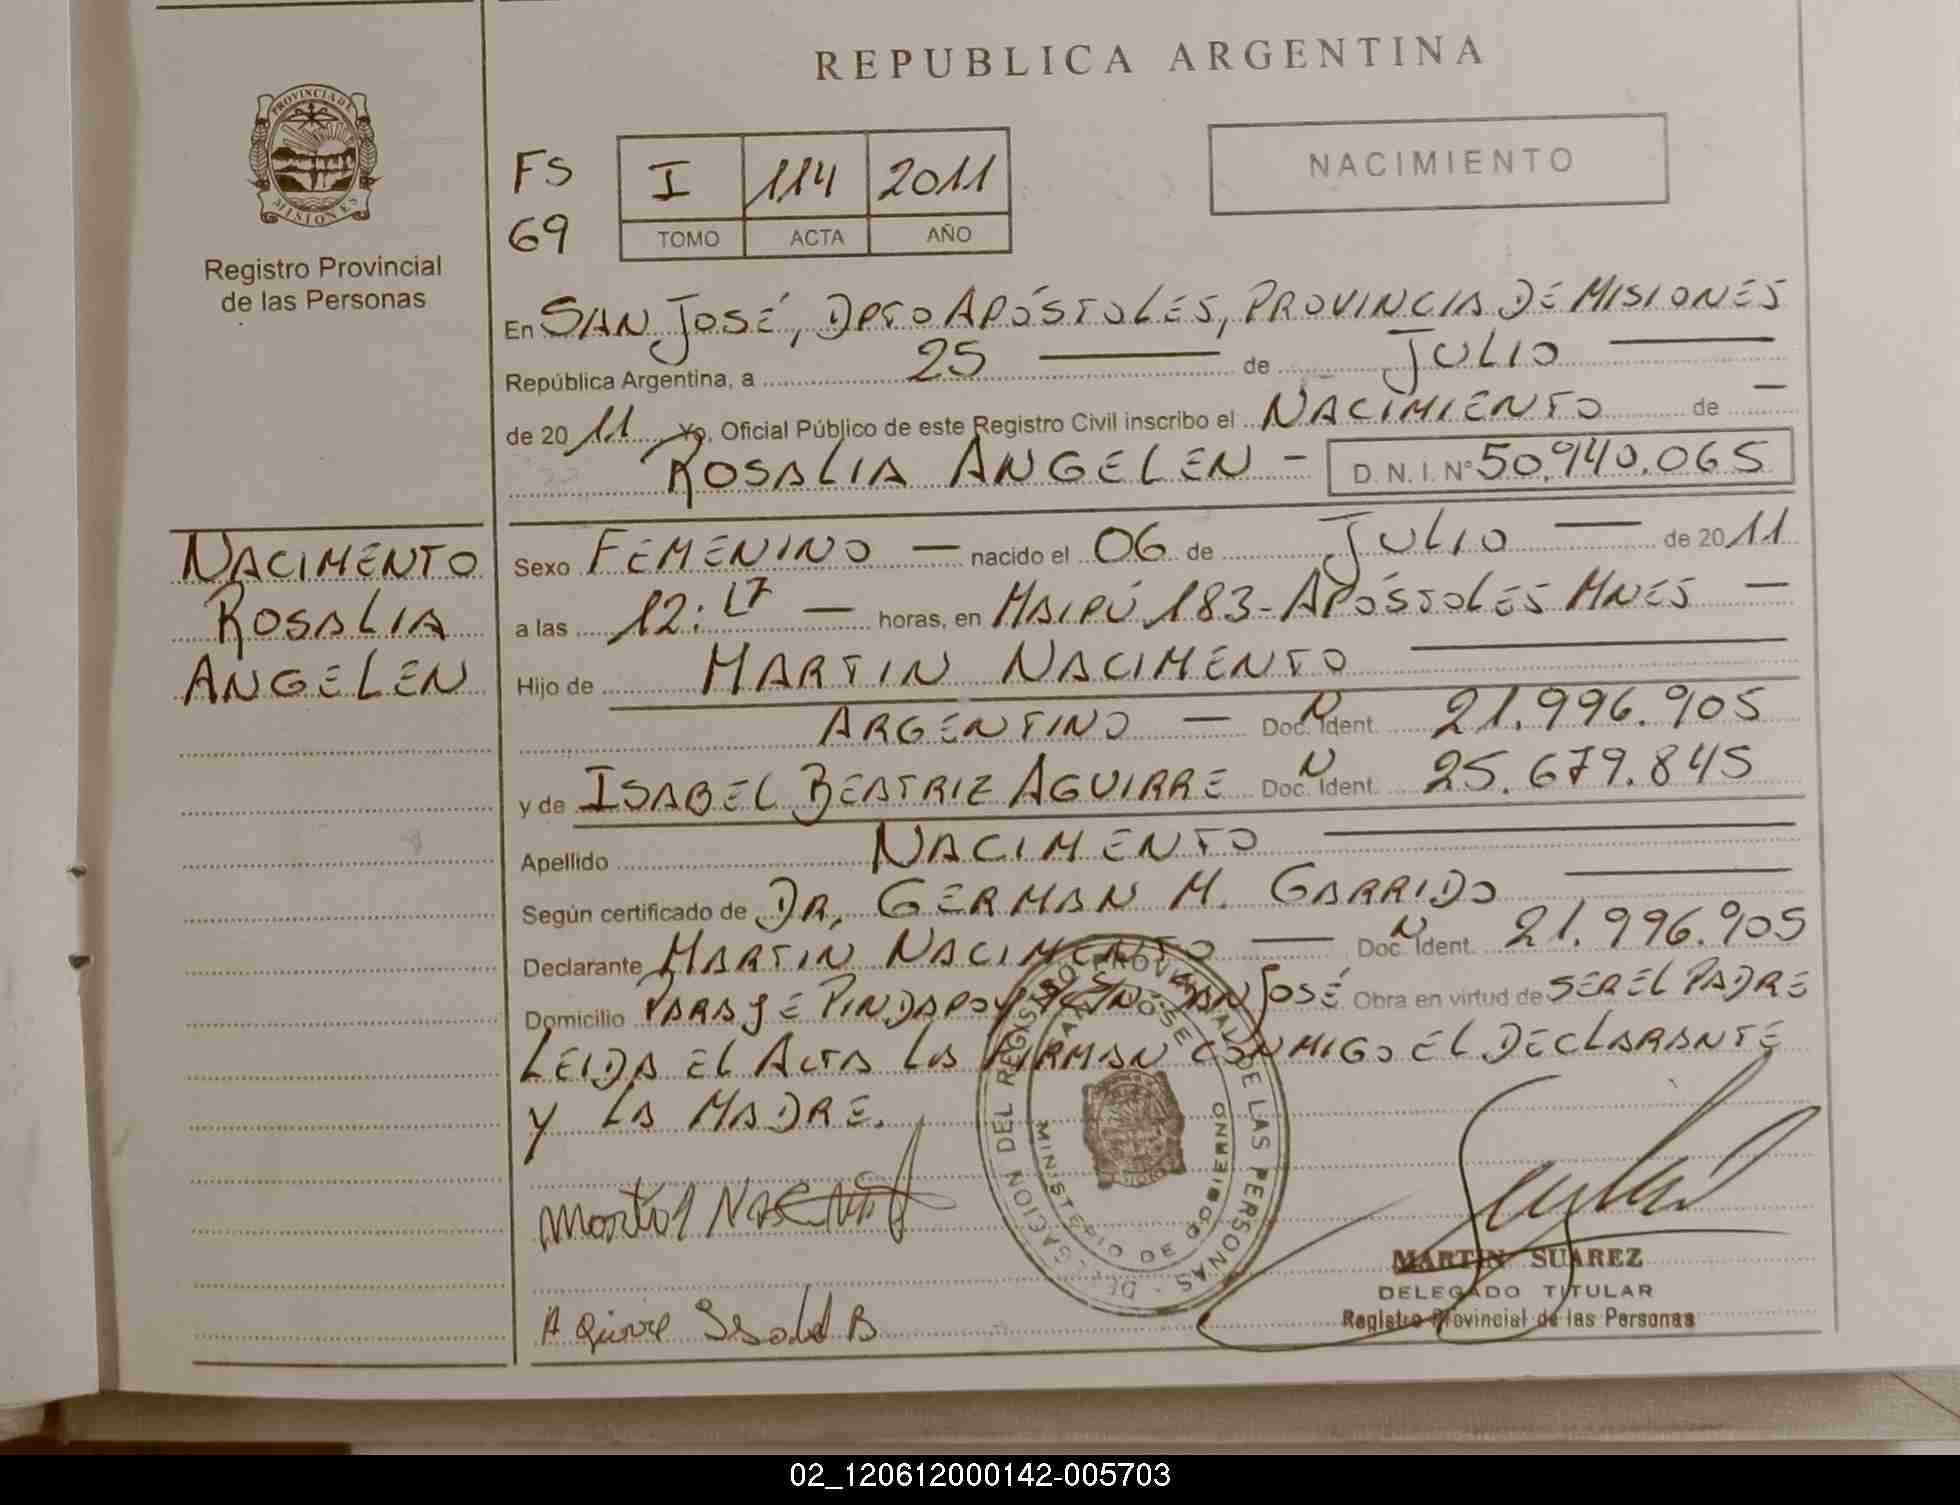 REPUBLICA ARGENTINA
PROVINCIA DE
MISIONES
Registro Provincial
de las Personas
FS
69
I 114 2011
TOMO ACTA AÑO
NACIMIENTO
En SAN JOSÉ, DPTO APÓSTOLES, PROVINCIA DE MISIONES
República Argentina, a 25 de JULIO
de 20 11 Yo, Oficial Público de este Registro Civil inscribo el NACIMIENTO de
ROSALIA ANGELEN - D. N. I. Nº 50.940.065
NACIMENTO
ROSALIA
ANGELEN
Sexo FEMENINO — nacido el 06 de JULIO — de 20 11
a las 12:17 — horas, en MAIPÚ 183 - APÓSTOLES MNES —
Hijo de MARTIN NACIMENTO
ARGENTINO — Doc. N Ident. 21.996.905
y de ISABEL BEATRIZ AGUIRRE Doc. N Ident. 25.679.845
Apellido NACIMENTO
Según certificado de DR. GERMAN M. GARRIDO
Declarante MARTIN NACIMENTO — Doc. N Ident. 21.996.905
Domicilio PARAJE PINDAPOY SAN JOSÉ Obra en virtud de SER EL PADRE
LEIDA EL ACTA LA FIRMAN CONMIGO EL DECLARANTE
Y LA MADRE.
DELEGACION DEL REGISTRO PROVINCIAL DE LAS PERSONAS
SAN JOSE
MINISTERIO DE GOBIERNO
MARTIN SUAREZ
DELEGADO TITULAR
Registro Provincial de las Personas
02_120612000142-005703